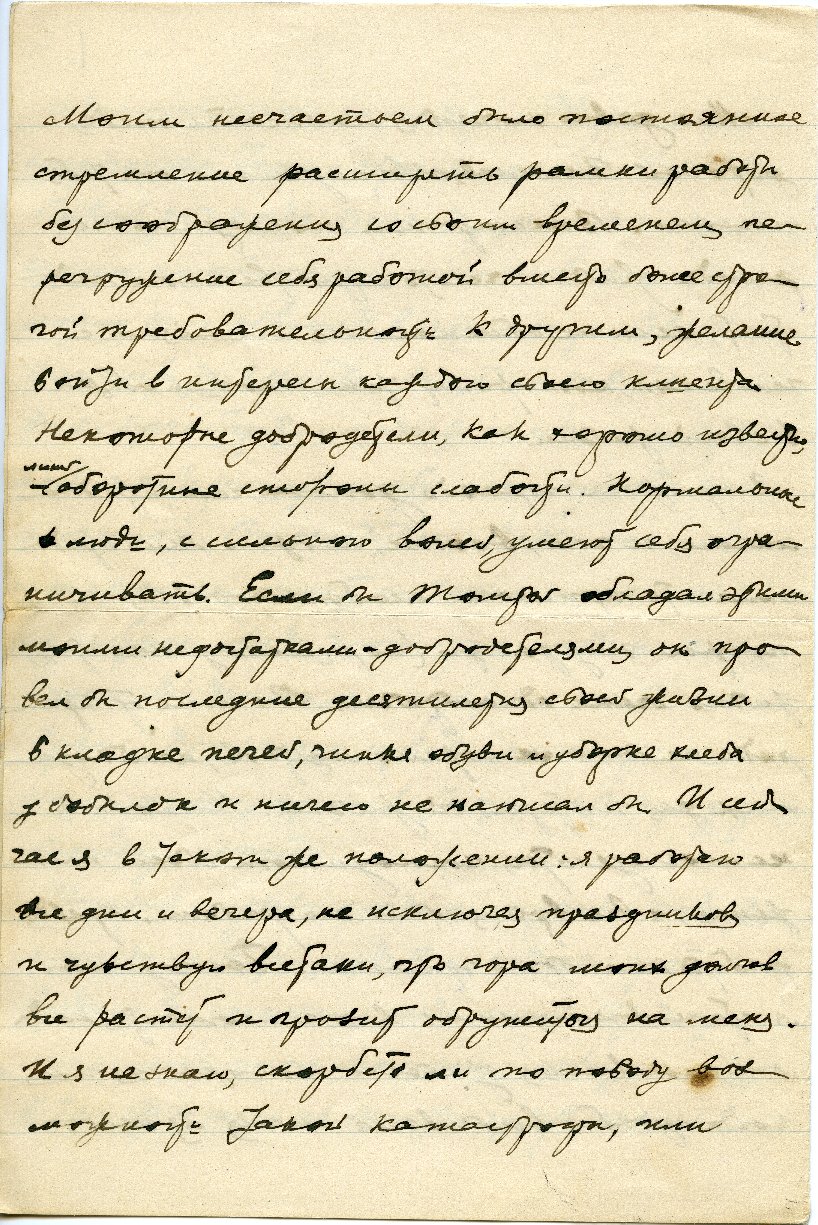 Моим несчастьем было постоянное
стремление расширять рамки работы
без соображения со своим временем, пе-
регружение себя работой вместо более стро-
гой требовательности к другим, желание
войти в интересы каждого своего клиента.
Некоторые добродетели, как хорошо известно,
лишь оборотные стороны слабости. Нормальные
люди, с сильною волей, умеют себя огра-
ничивать. Если бы Толстой обладал этими
моими недостатками-добродетелями, он про-
вел бы последние десятилетия своей жизни
в кладке печей, чинке обуви и уборке хлеба
у бобылок и ничего не написал бы. И сей-
час я в таком же положении: я работаю
все дни и вечера, не исключая праздников,
и чувствую всетаки, что гора моих долгов
все растет и грозит обрушиться на меня.
И я не знаю, скорбеть ли по поводу воз-
можности такой катастрофы, или